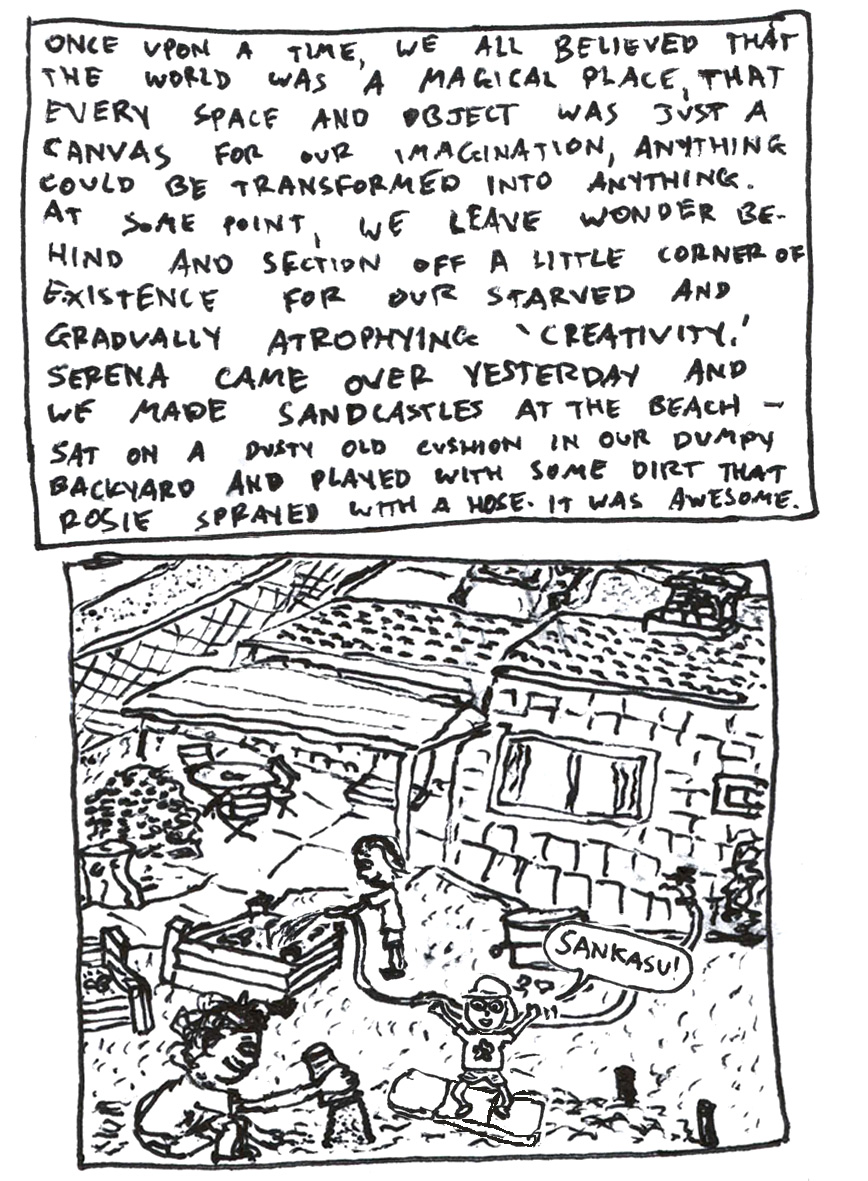 ONCE UPON A TIME, WE ALL BELIEVED THAT
THE WORLD WAS A MAGICAL PLACE, THAT
EVERY SPACE AND OBJECT WAS JUST A
CANVAS FOR OUR IMAGINATION, ANYTHING
COULD BE TRANSFORMED INTO ANYTHING.
AT SOME POINT, WE LEAVE WONDER BE-
HIND AND SECTION OFF A LITTLE CORNER OF
EXISTENCE FOR OUR STARVED AND
GRADUALLY ATROPHYING 'CREATIVITY.'
SERENA CAME OVER YESTERDAY AND
WE MADE SANDCASTLES AT THE BEACH -
SAT ON A DUSTY OLD CUSHION IN OUR DUMPY
BACKYARD AND PLAYED WITH SOME DIRT THAT
ROSIE SPRAYED WITH A HOSE. IT WAS AWESOME.
SANKASU!